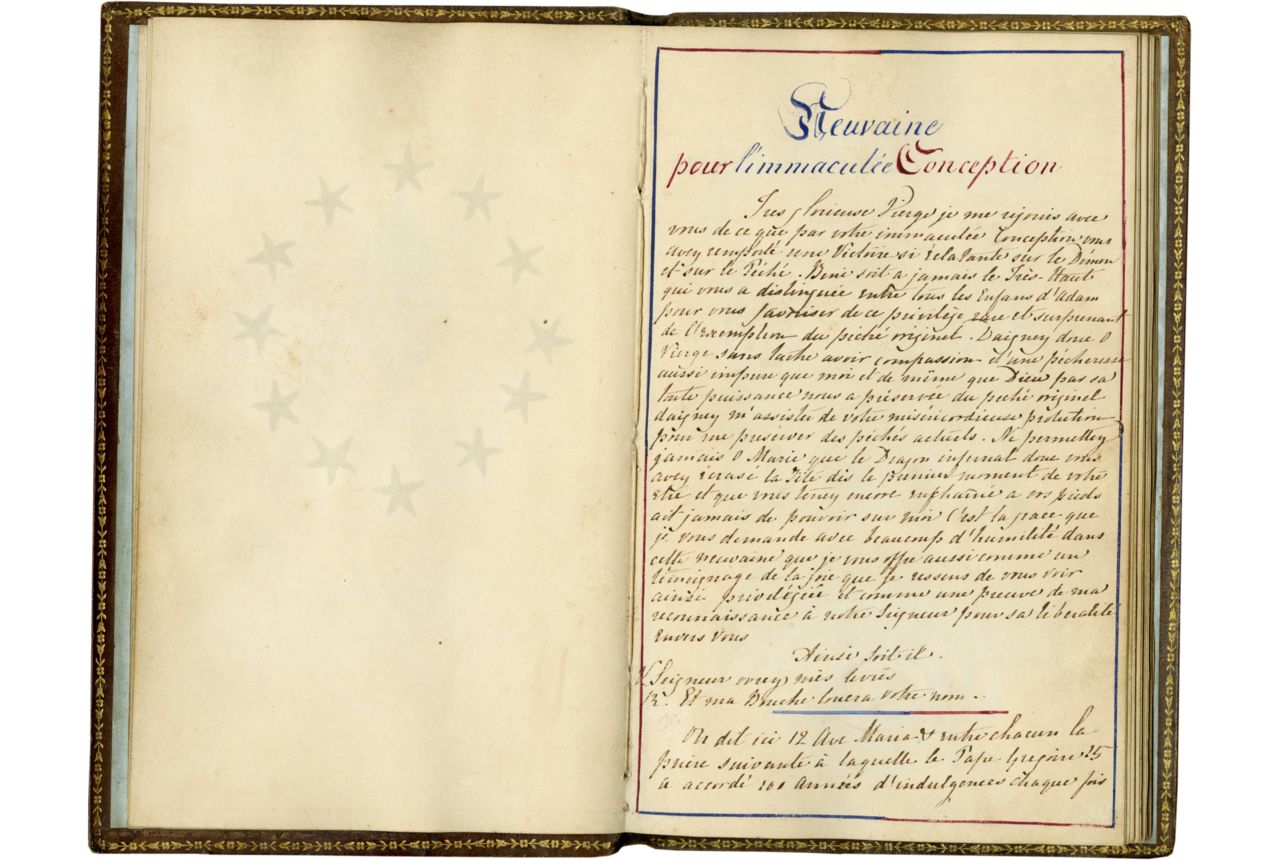 Neuvaine
pour l'immaculée Conception
Tres glorieuse Vierge je me rejouis avec
vous de ce que par votre immaculée Conception vous
avez remporté une Victoire si éclatante sur le Démon
et sur le Péché. Beni soit a jamais le Très-Haut
qui vous a distinguée entre tous les Enfans d'Adam
pour vous favoriser de ce privilége rare et surprenant
de l'exemption du péché originel. Daignez donc O
Vierge sans tache avoir compassion d'une pécheresse
aussi impure que moi et de même que Dieu par sa
toute puissance vous a préservée du peché originel
daignez m'assister de votre miséricordieuse protection
pour me preserver des péchés actuels. Ne permettez
jamais O Marie que le Dragon infernal donc vous
avez écrasé la Tête dès le premier moment de votre
Etre et que vous tenez encore a vos pieds
ait jamais de pouvoir sur moi C'est la grace que
je vous demande avec beaucoup d'humilité dans
cette neuvaine que je vous offre aussi comme un
témoignage de la joie que je ressens de vous voir
ainsi privilégiée et comme une preuve de ma
reconnaissance à notre Seigneur pour sa liberalité
Envers vous
Ainsi soit il.
V. Seigneur ouvrez mes levres
R. Et ma Bouche louera votre nom.
On dit ici 12 Ave Maria & entre chacun la
priere suivante à laquelle le Pape Gregoire 15
a accordé 100 Années d'indulgences chaque fois